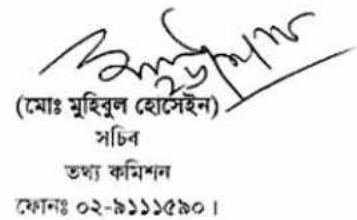 (মোঃ মুহিবুল হোসেইন)
সচিব
তথ্য কমিশন
ফোনঃ ০২-৯১১১৫৯০।